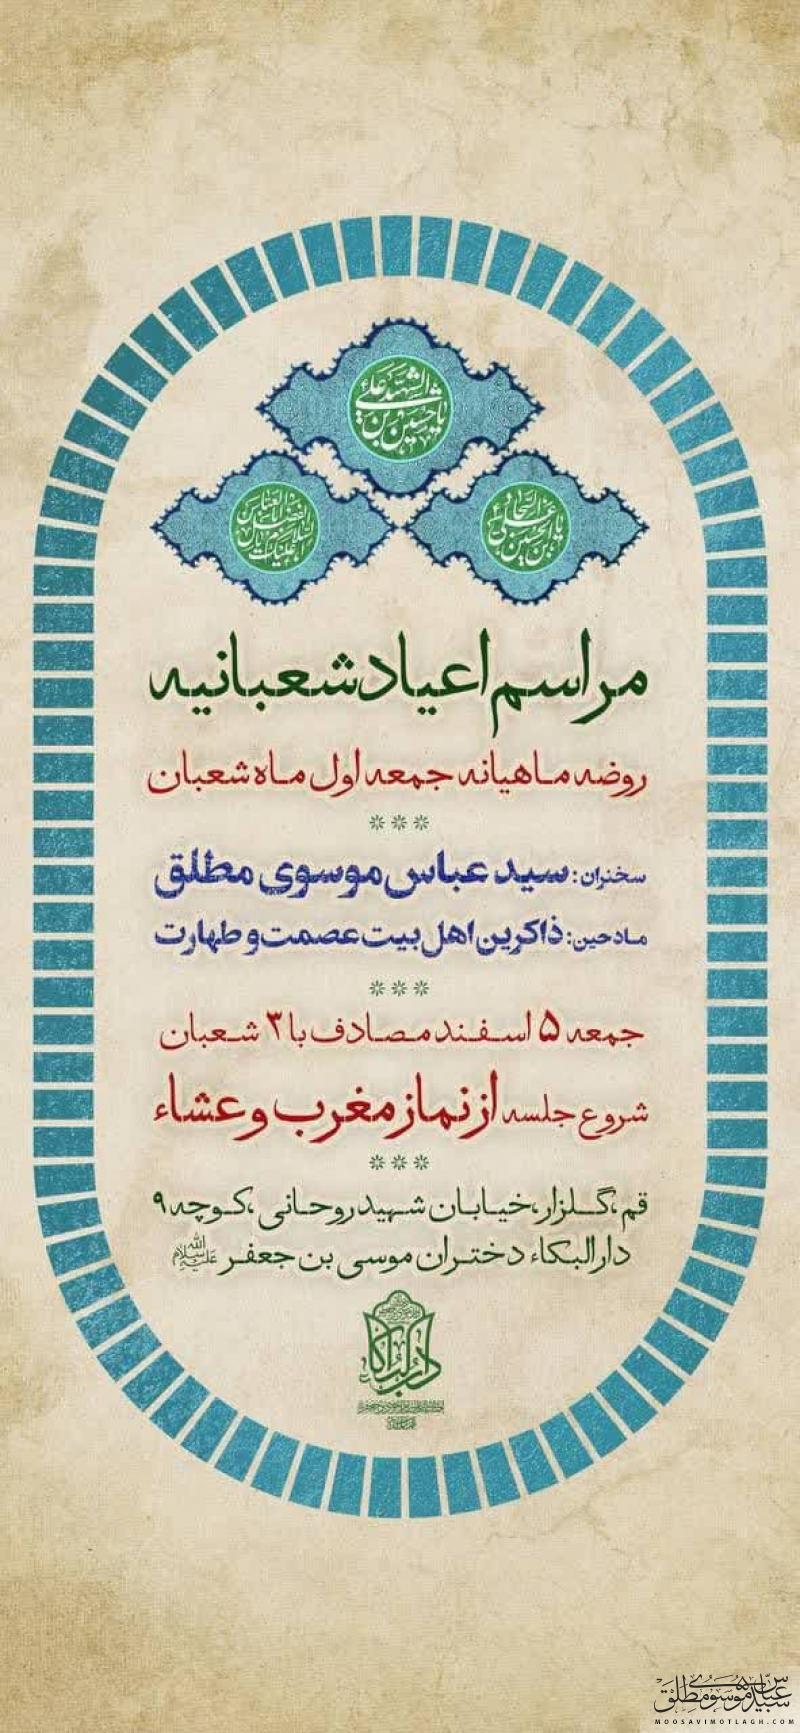 یا حسین بن علی الشهید
یا علی بن الحسین السجاد
السلام علیک یا اباالفضل العباس
مراسم اعیاد شعبانیه
روضه ماهیانه جمعه اول ماه شعبان
سخنران: سید عباس موسوی مطلق
مادحین: ذاکرین اهل بیت عصمت و طهارت
جمعه ۵ اسفند مصادف با ۳ شعبان
شروع جلسه از نماز مغرب و عشاء
قم، گلزار، خیابان شهید روحانی، کوچه ۹
دارالبکاء دختران موسی بن جعفر علیه‌السلام
دارالبکاء
سید عباس موسوی مطلق
MOOSAVIMOTLAGH.COM